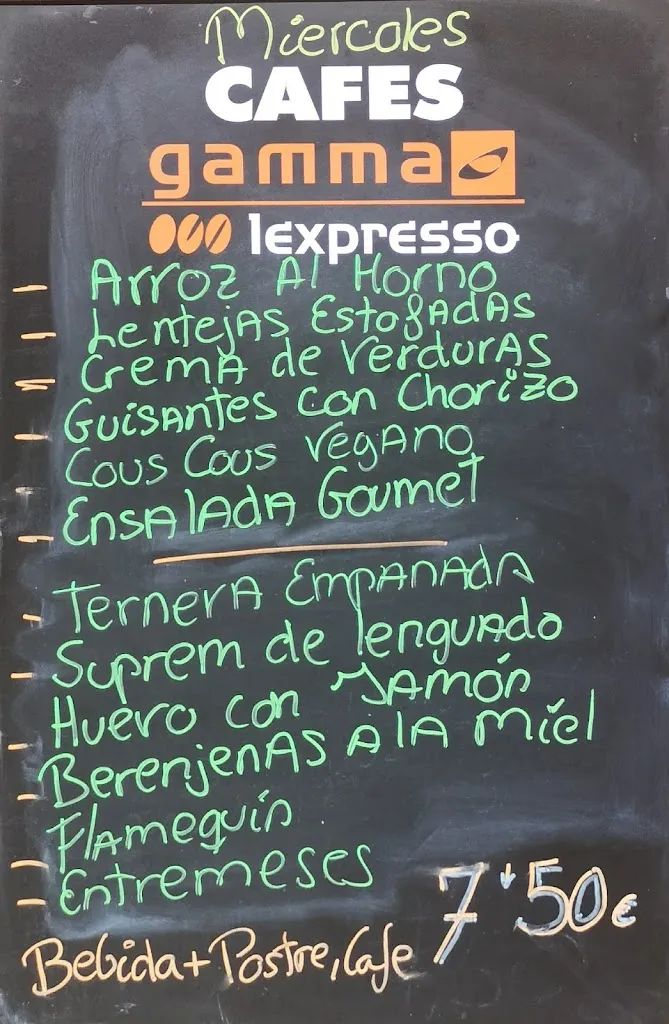 Miercoles
CAFES
gamma
lexpresso
Arroz Al Horno
Lentejas Estofadas
Crema de Verduras
Guisantes con Chorizo
Cous Cous Vegano
Ensalada Goumet
Ternera Empanada
Suprem de lenguado
Huevo con Jamón
Berenjenas A lA Miel
Flamequín
Entremeses
7'50€
Bebida+Postre, Cafe